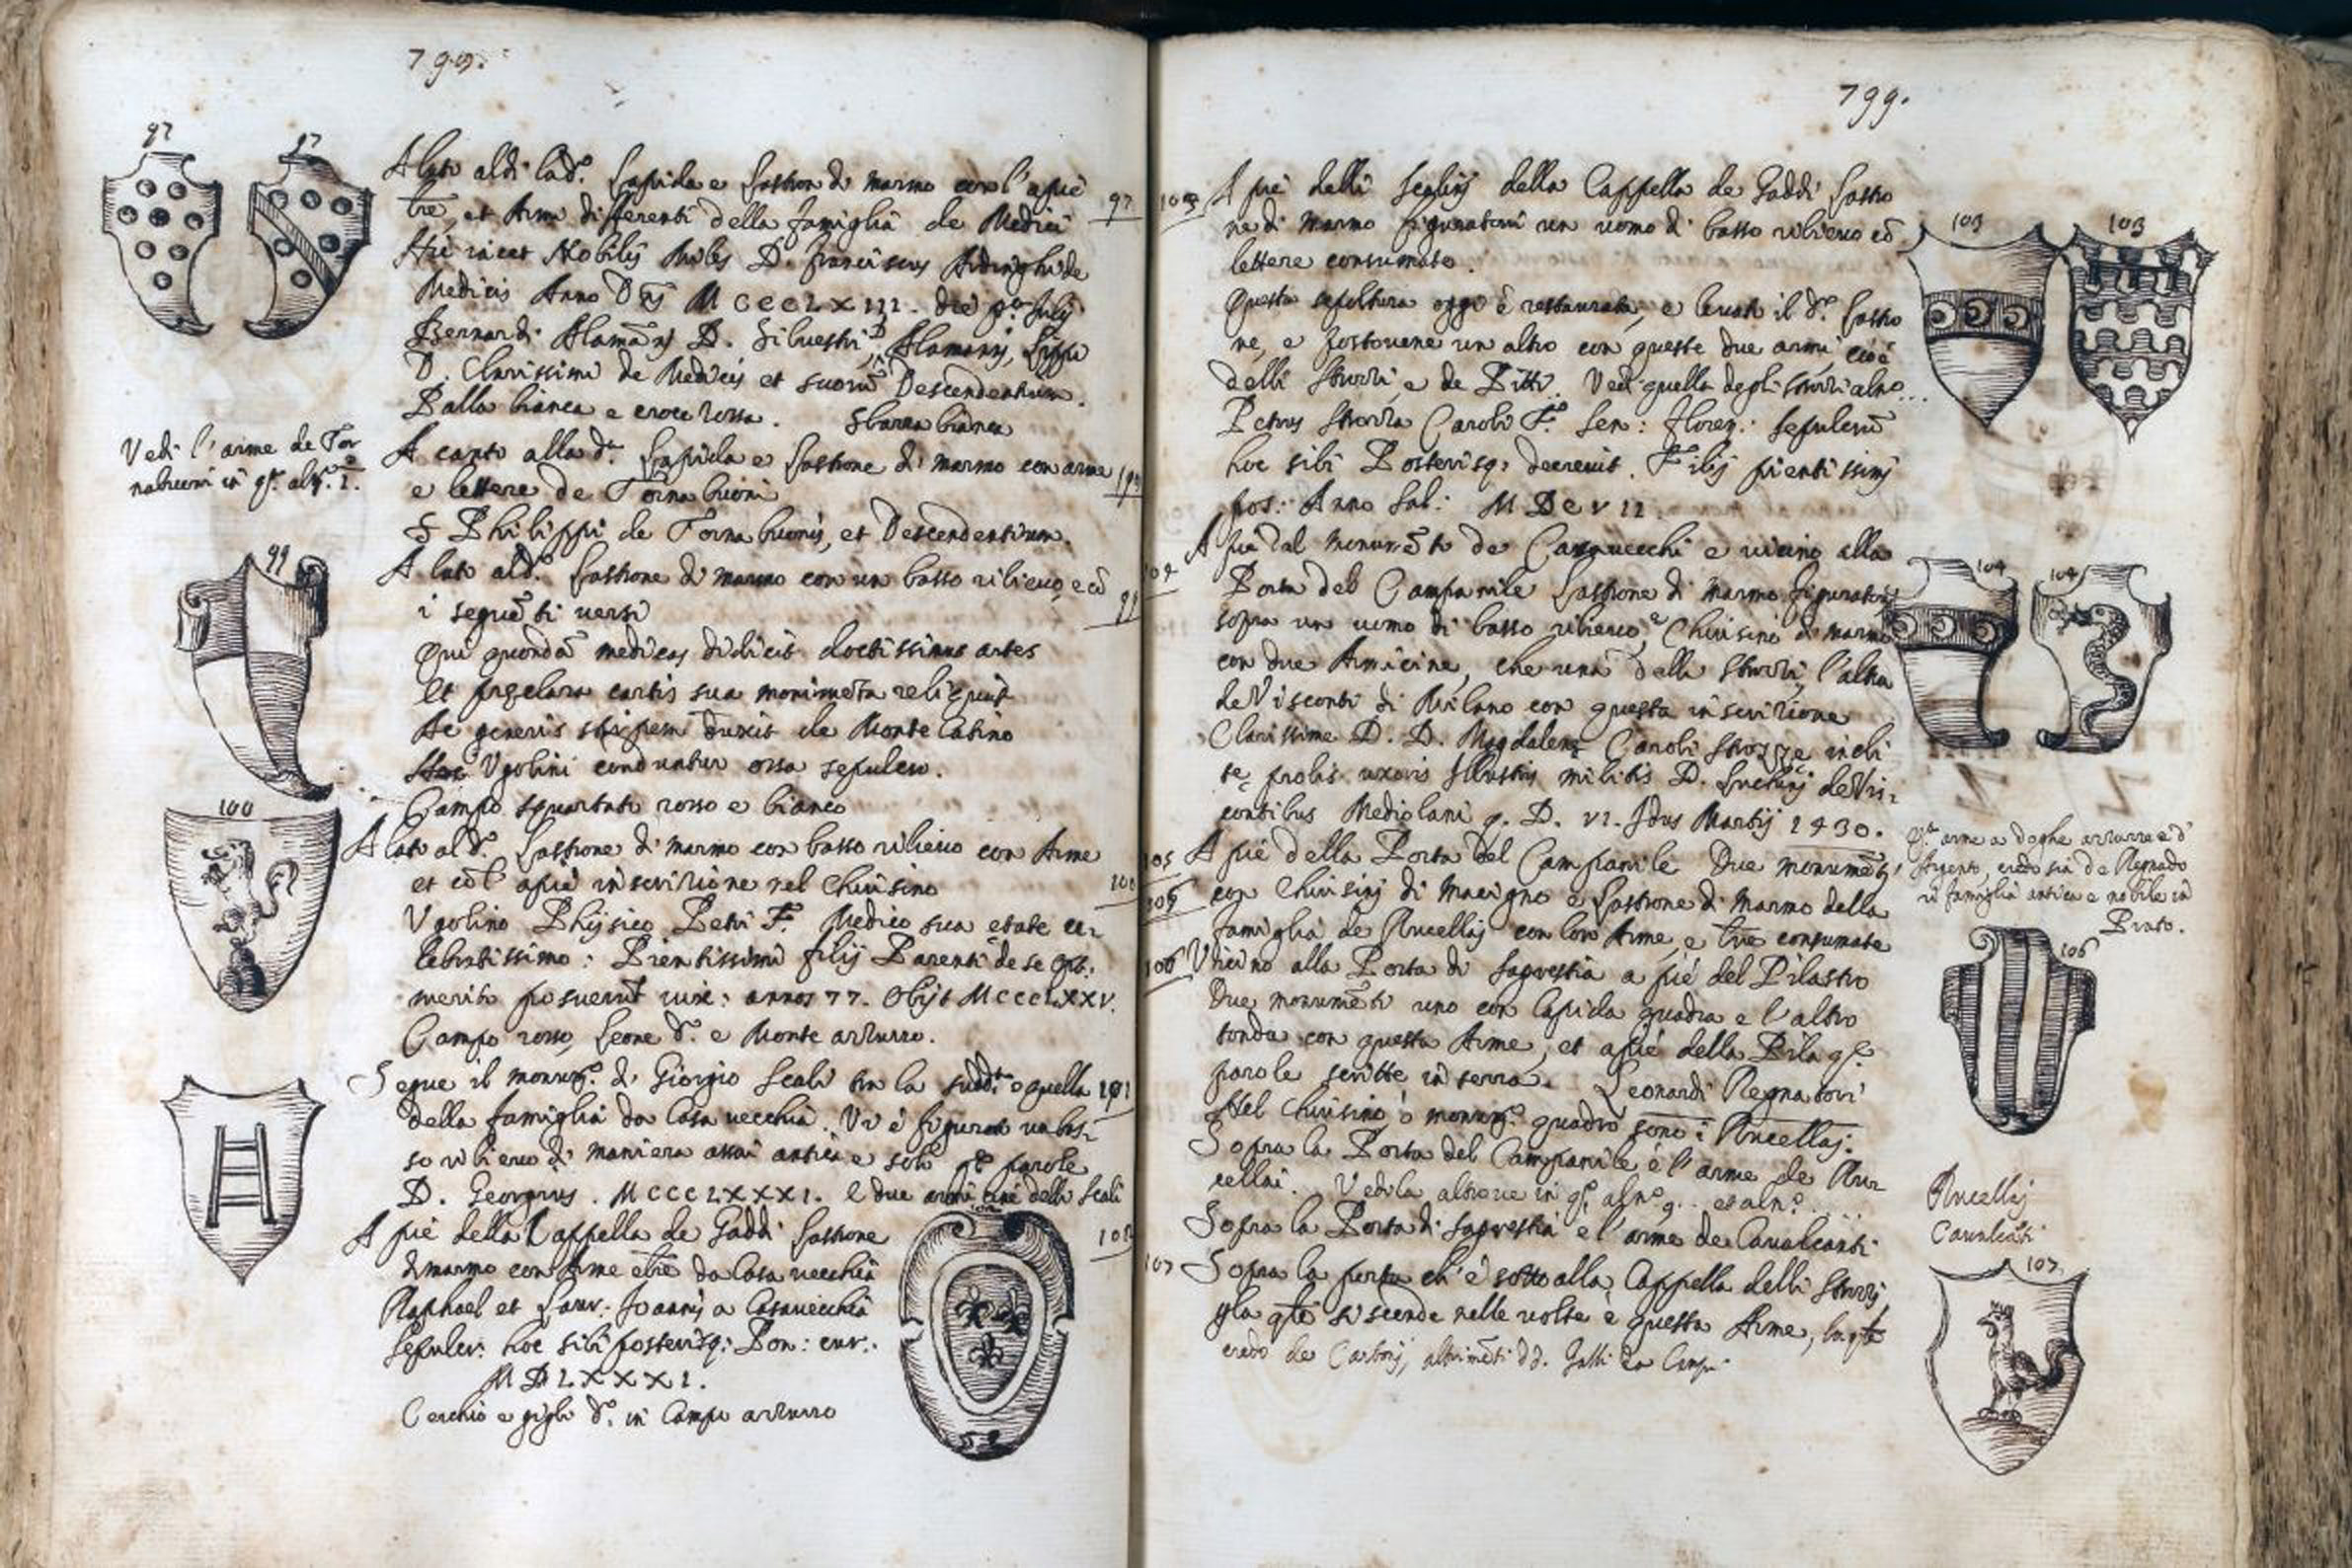 799.
97
97
A lato al di lad.º Lapida e Lastron di marmo con l'apiè
tre, et Armi differenti della famiglia de Medici
97
Hic iacet Nobilis Miles D. Franciscus Ardinghi de
Medicis Anno Dñj M CCCLXIII. die pº Julij
Bernardi Alamañj D. Silvestri D. Alamanj, Lippi
D. Clarissimi de Medicis et suorũ Descendentium.
Palla bianca e croce rossa. Sbarra bianca
Vedi l'arme de Tor
nabuoni in
A canto alla d.ª Lapida e Lastrone di marmo con arme
e lettere de Tornabuoni
S Philippi de Tornabuonis, et Descendentium.
99
A lato al d.º Lastrone di marmo con un basso rilievo, e cõ
i seguẽti versi
99
Qui quondã medicas didicit doctissimus artes
Et preclara cartis sua monimẽta reliquit
Ac generis stirpem duxit de Monte Catino
Hoc Ugolini conduntur ossa sepulcro.
Campo squartato rosso e bianco
100
A lato al d.º Lastrone di marmo con basso rilievo con Arme
et cõl' apiè inscrizione nel Chiusino
100
Ugolino Physico Petri F. Medico sua etate ce-
lebratissimo: Pientissimi filij Parenti de se opt.
merito posuerũt vix: annos 77. Obijt MCCCLXXV.
Campo rosso, Leone d.º e Monte azzurro.
Segue il monumº. di Giorgio Scali tra la sudd.ª e quella
101
della famiglia da Casa vecchia. Vi è figurato un bas-
so rilievo di maniera assai antica e solo parole
D. Georgius. MCCCLXXXI. e due armi cioè delli Scali
102
A piè della Cappella de Gaddi Lastrone
102
di marmo con Arme e tre da Casa vecchia
Raphael et Laur: Joannis a Casavecchia
Sepulcr: hoc sibi posterisq: Pon: cur:
M D LXXXI.
Cerchio e gigli d.º in Campo azzurro
799.
103
A piè delli Scalinj della Cappella de Gaddi Lastro
ne di marmo figuratovi un uomo di basso rilievo cõ
lettere consumate.
103
103
Questa sepoltura oggi è restaurata, e levato il d.º Lastro
ne, e postovene un altro con queste due armi, cioè
delli Strozzi, e de Pitti. Vedi quella degli Strozzi al no...
Petrus Strozza Caroli F. Sen: Floren: sepulcrũ
hoc sibi Posterisq: decrevit. Filij pientissimj
pos: Anno Sal: M DC VII.
104
A piè dal monumẽto de Cavavecchi e vicino alla
Porta del Campanile Lastrone di marmo figuratovi
sopra un uomo di basso rilievo, e Chiusino di marmo
con due Armicine, che una della Strozzi, l'altra
de Visconti di Milano con questa inscrizione
104
104
Clarissime D. D. Magdalene Caroli Strozze incli
te prolis uxoris Illustris militis D. Luchinj de Vi-
contibus Mediolani q. D. VI. Idus Martij 1430.
105
106
A piè della Porta del Campanile Due monumẽti
con Chiusinj di macigno e Lastrone di Marmo della
famiglia de Rucellaj con loro Arme, e tre consumate
Q.ª arme a doghe azzurre e d'
Argento, credo sia de Regnado
ri famiglia antica e nobile in
Prato.
106
106
Vicino alla Porta di Sagrestia a piè del Pilastro
Due monumẽti uno con Lapida quadra e l'altro
tonda con questa Arme, et apiè della Pila q.ᵉ
parole scritte in terra. Leonardi Regnatori
Nel Chiusino o monumº. quadro sono i Rucellaj.
Sopra la Porta del Campanile è l'arme de Ruc
cellai. Vedila altrove in
Sopra la Porta di Sagrestia e l'arme de Cavalcanti
Rucellaj
Cavalcãti
107
Sopra la porta ch'è sotto alla Cappella delli Strozzi
p la q̃le si scende nelle volte è questa Arme, la q̃le
credo de Cartonj, altrimẽti dd. Galli da
107